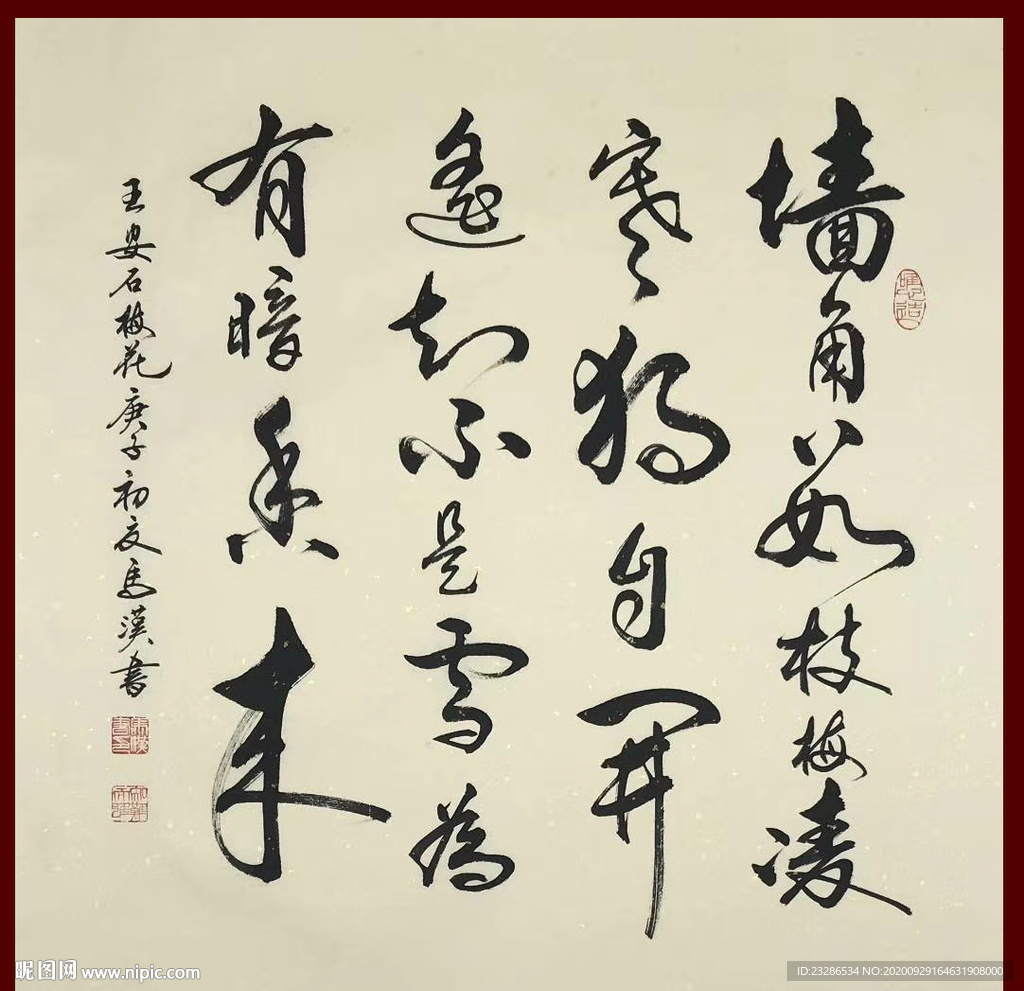 墙角数枝梅凌
寒獨自開
遥知不是雪為
有暗香来
王安石梅花庚子初夏馬漢書
昵图网 www.nipic.com
ID:23286534 NO:20200929164631908000